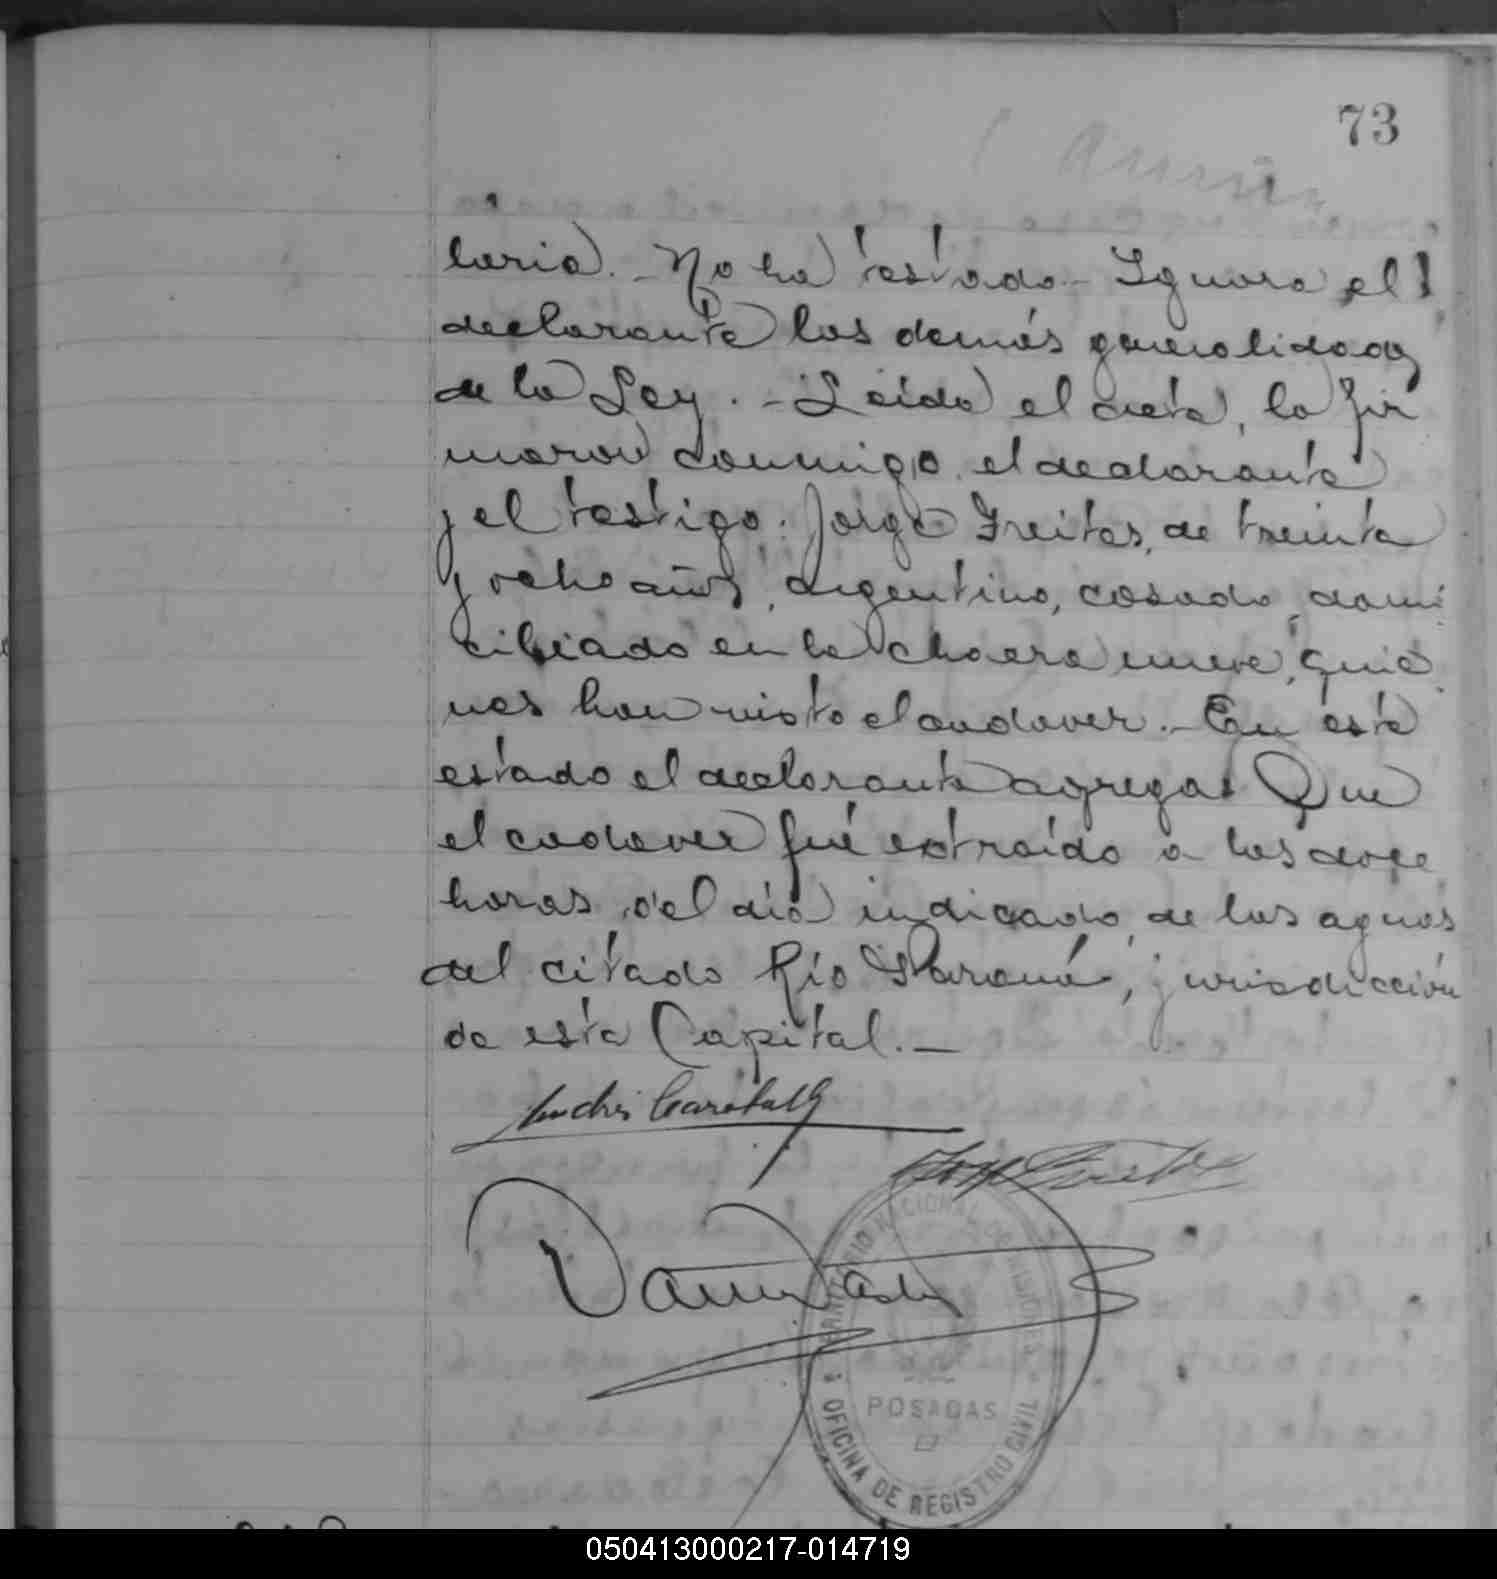 73
laria. - No ha testado - Ignora el
declarante las demás generalidades
de la Ley. - Leída el acta, la fir
maron conmigo el declarante
y el testigo: Jorge Freites, de treinta
y ocho años, argentino, casado, domi
ciliado en la chacra nueve, quié
nes han visto el cadaver. - En éste
estado el declarante agrega: Que
el cadaver fué extraído a las doce
horas del día indicado, de las aguas
del citado Río Paraná, jurisdicción
de esta Capital. -
TERRITORIO NACIONAL DE MISIONES
POSADAS
OFICINA DE REGISTRO CIVIL
050413000217-014719